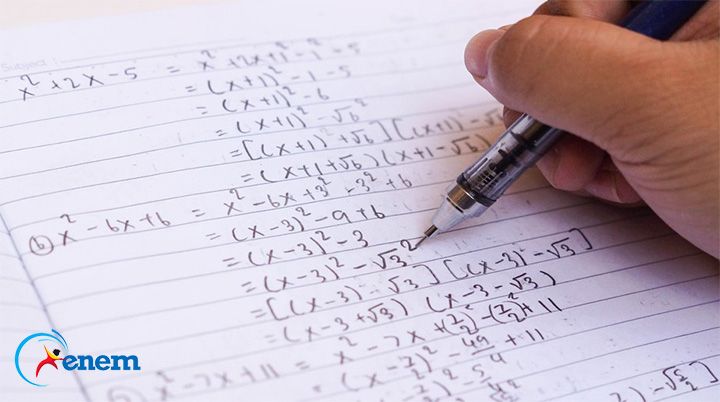 Subject
x² + 2x - 5 = x² + 2x + 1² - 1² - 5
= (x+1)² - 1 - 5
= (x+1)² - 6
= (x+1)² - √6²
= [(x+1) + √6] [(x+1) -
= (x+1+√6) (x+1-√6)
(b) x² - 6x + 6 = x² - 6x + 3² - 3² + 6
= (x-3)² - 9 + 6
= (x-3)² - 3
= (x-3)² - √3²
= [(x-3) - √3] [(x-3) - √3]
= (x-3+√3) (x-3-√3)
x² - 7x + 11 = x² - 7x + (7/2)² - (7/2)² + 11
= (x - 7/2)² - 49/4 + 11
5/4
enem